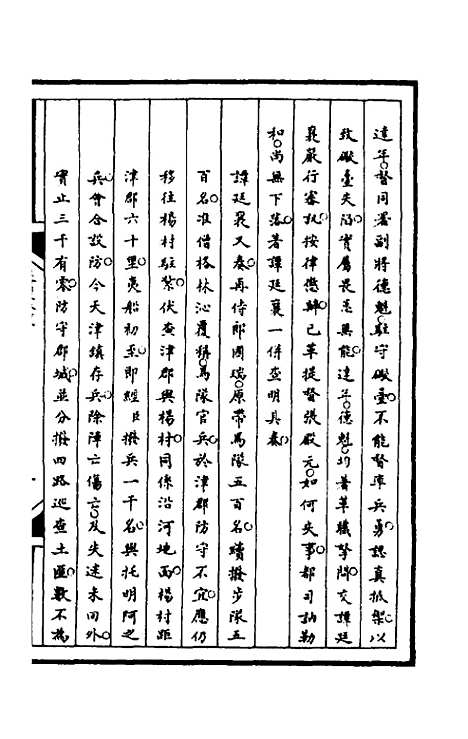 達年督同署副將德魁駐守礮臺不能督率兵勇認真抵禦以
致礮臺失陷實屬畏葸無能達年德魁均著革職拏問交譚廷
襄嚴行審訊按律懲辦已革提督張殿元如何失事都司訥勒
和尚無下落著譚廷襄一併查明具奏
譚廷襄又奏再侍郎國瑞原帶馬隊五百名續撥步隊五
百名准僧格林沁覆稱馬隊官兵於津郡防守不宜應仍
移往楊村駐紮伏查津郡與楊村同係沿河地面楊村距
津郡六十里夷船初至即經臣撥兵一千名與托明阿之
兵會合設防今天津鎮存兵除陣亡傷亡及失迷未回外
實止三千有零防守郡城並分撥四路巡查土匪數不為